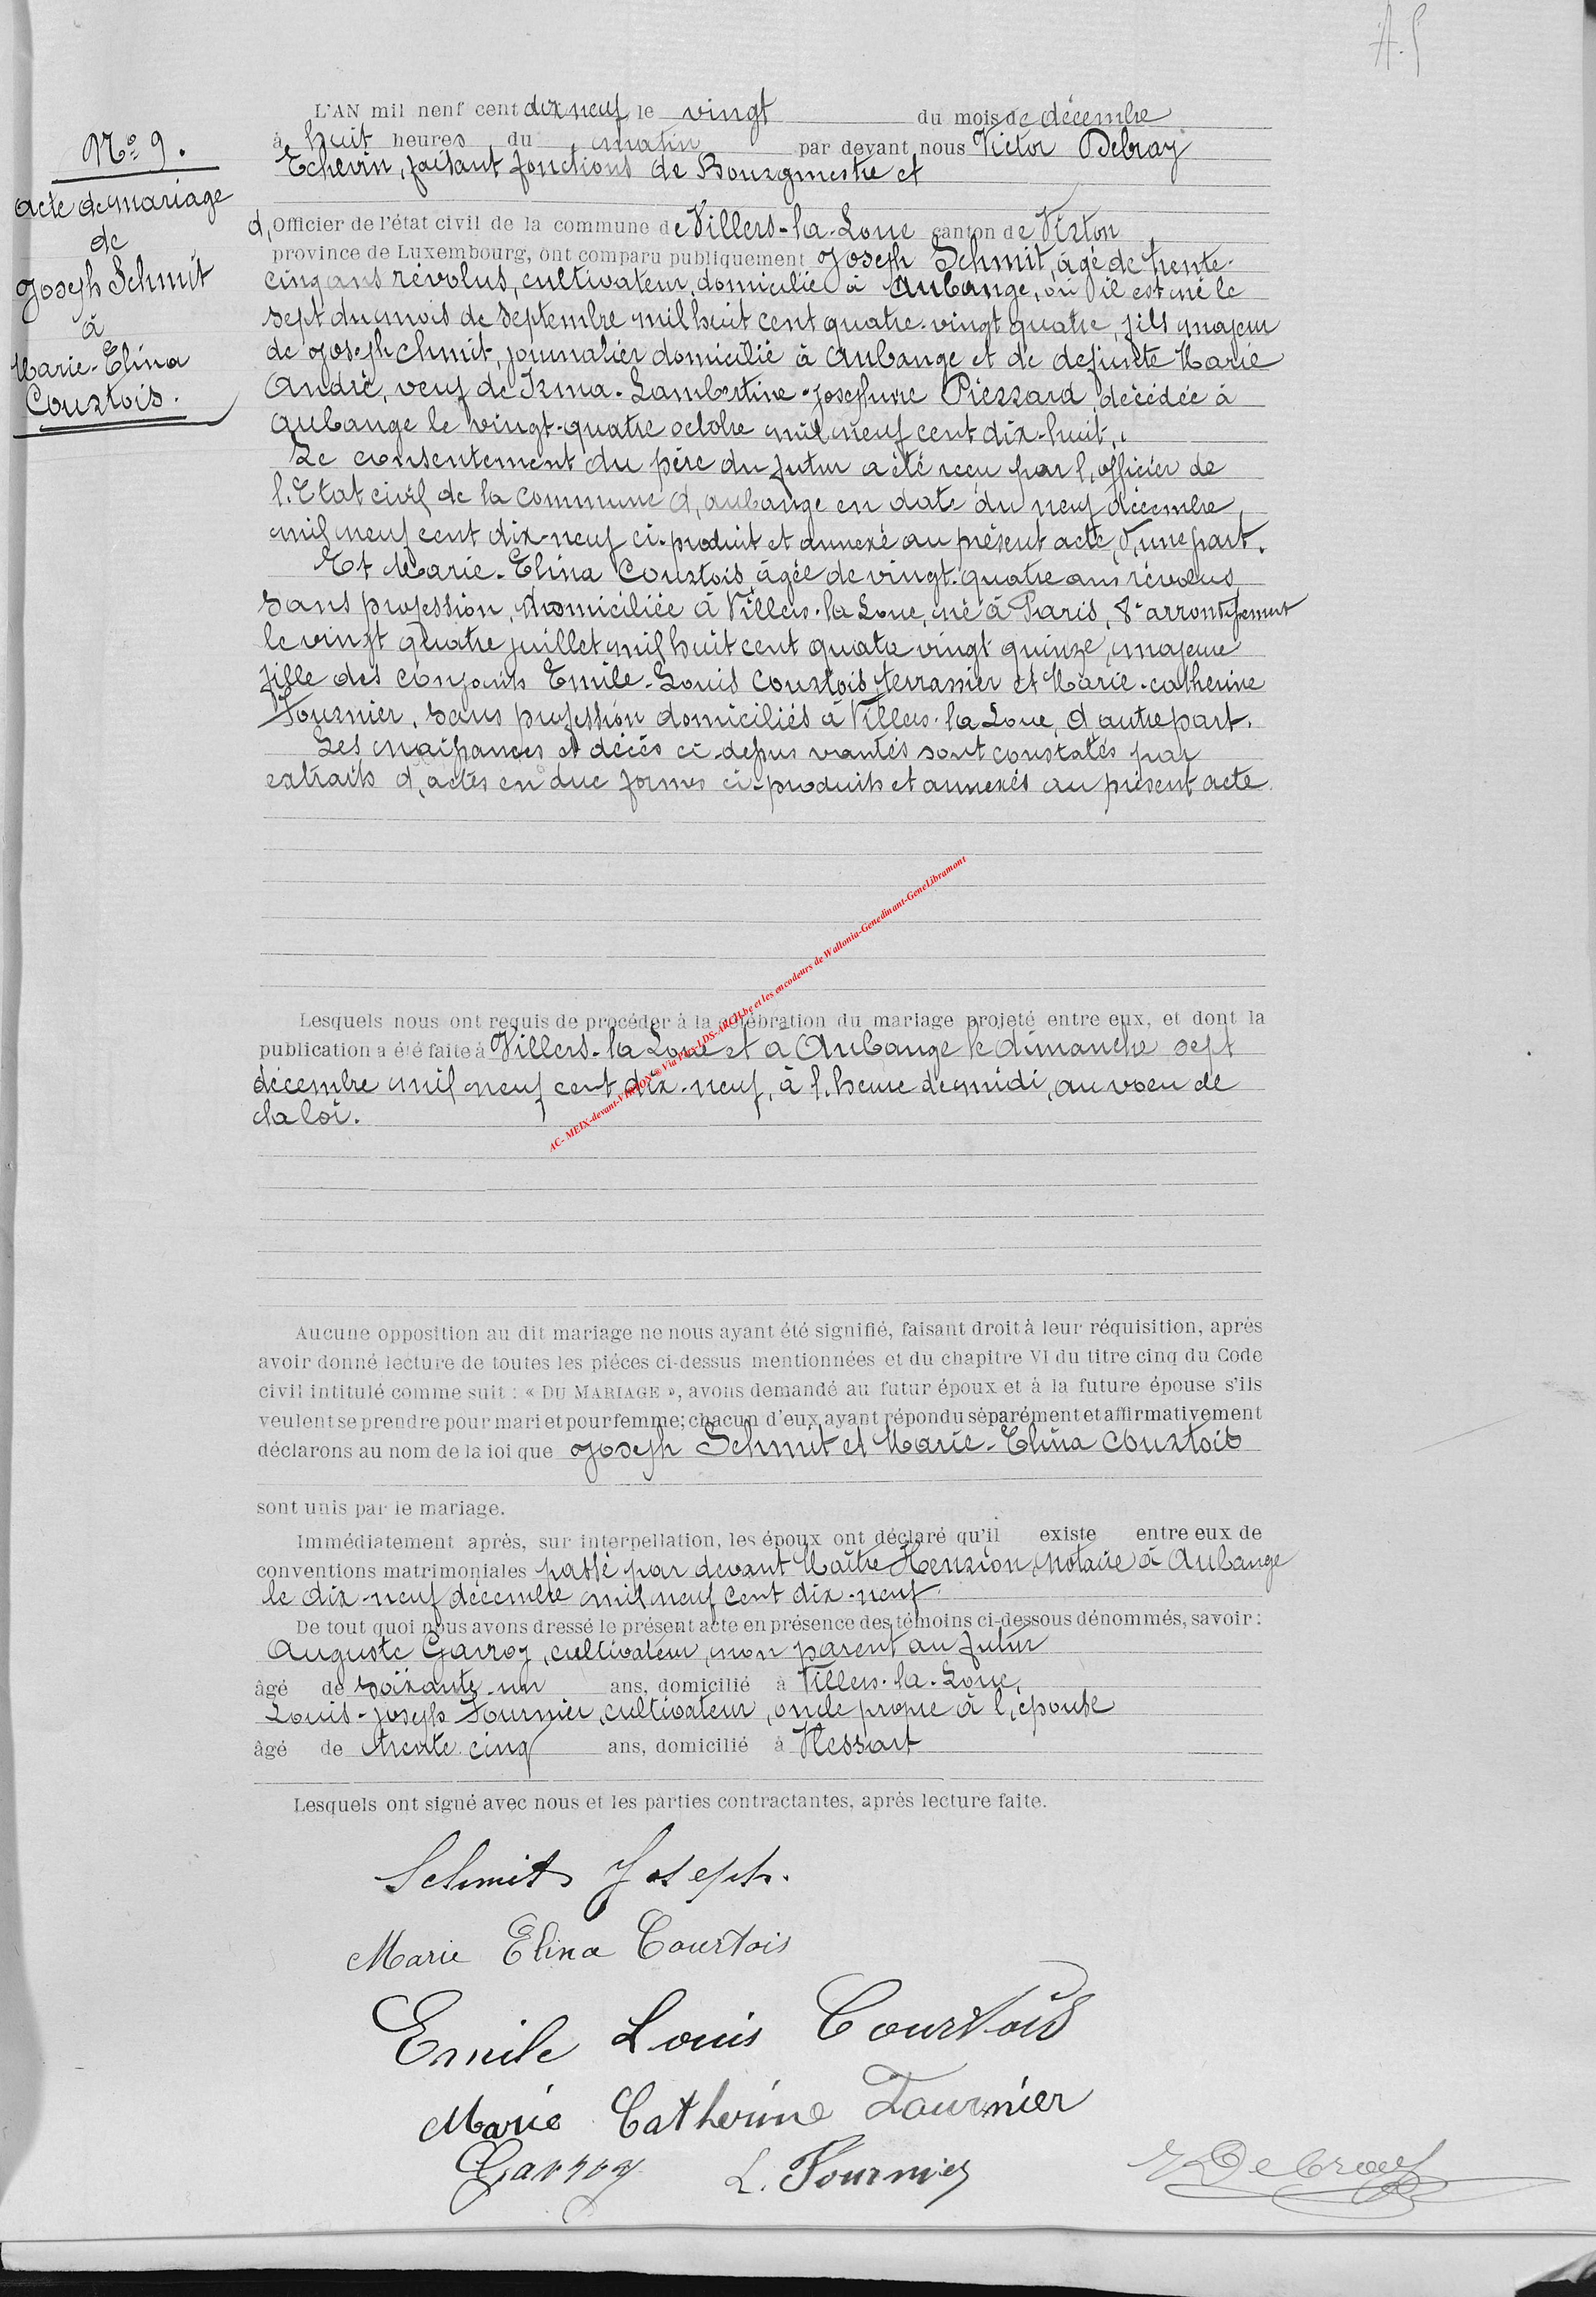 A.S
L'AN mil neuf cent dix neuf le vingt du mois de décembre
à huit heures du matin par devant nous Victor Debray
Echevin, faisant fonctions de Bourgmestre et
N° 9.
Acte de mariage
de
Joseph Schmit
à
Marie-Elina
Courtois.
d, Officier de l'état civil de la commune de Villers-la-Loue canton de Virton
province de Luxembourg, ont comparu publiquement Joseph Schmit, âgé de trente-
cinq ans révolus, cultivateur, domicilié à Aubange, où il est né le
sept du mois de septembre mil huit cent quatre-vingt quatre, fils majeur
de Joseph chmit, journalier domicilié à Aubange et de defunte Marie
André, veuf de Irma-Lambertine-Josephine Piérrard, décédée à
Aubange le vingt-quatre octobre mil neuf cent dix-huit,.
Le consentement du père du futur a été reçu par l, officier de
l, Etat civil de la commune d, aubange en date du neuf décembre,
mil neuf cent dix-neuf ci-produit et annexé au présent acte, d, une part.
Et Marie-Elina Courtois, âgée de vingt-quatre ans révolus
sans profession, domiciliée à Villers-la-Loue, né à Paris, 8e arrondissement
le vingt quatre juillet mil huit cent quatre vingt quinze, majeure
fille des conjoints Emile-Louis Courtois, terrassier et Marie-catherine
Fournier, sans profession domiciliés à Villers-la Loue, d autre part.
Les naissances et décés ci-dessus vantés sont constatés par
extraits d, actes en due formes ci-produits et annexés au présent acte
Lesquels nous ont requis de procéder à la célébration du mariage projeté entre eux, et dont la
publication a été faite à Villers-la Loue et à Aubange le dimanche sept
décembre mil neuf cent dix-neuf, à l, heure de midi, au voeu de
la loi.
AC- MEIX-devant-VIRTON © Via Plex-LDS-ARCH.be et les encodeurs de Wallonia-Genedinant-GeneLibramont
Aucune opposition au dit mariage ne nous ayant été signifié, faisant droit à leur réquisition, après
avoir donné lecture de toutes les piéces ci-dessus mentionnées et du chapitre VI du titre cinq du Code
civil intitulé comme suit : « DU MARIAGE », avons demandé au futur époux et à la future épouse s'ils
veulent se prendre pour mari et pour femme; chacun d'eux ayant répondu séparément et affirmativement
déclarons au nom de la loi que Joseph Schmit et Marie-Elina Courtois
sont unis par le mariage.
Immédiatement après, sur interpellation, les époux ont déclaré qu'il existe entre eux de
conventions matrimoniales passé par devant Maître Henrion, notaire à Aubange
le dix-neuf décembre mil neuf cent dix-neuf.
De tout quoi nous avons dressé le présent acte en présence des témoins ci-dessous dénommés, savoir :
Auguste Garroy, cultivateur, non parent au futur
âgé de soixante-un ans, domicilié à Villers-la-Loue,
Louis-Joseph Fournier, cultivateur, oncle propre à l, épouse
âgé de trente cinq ans, domicilié à Vlessart
Lesquels ont signé avec nous et les parties contractantes, après lecture faite.
Schmit Joseph.
Marie Elina Courtois
Emile Louis Courtois
Marie Catherine Fournier
Garroy L. Fournier
V Debray